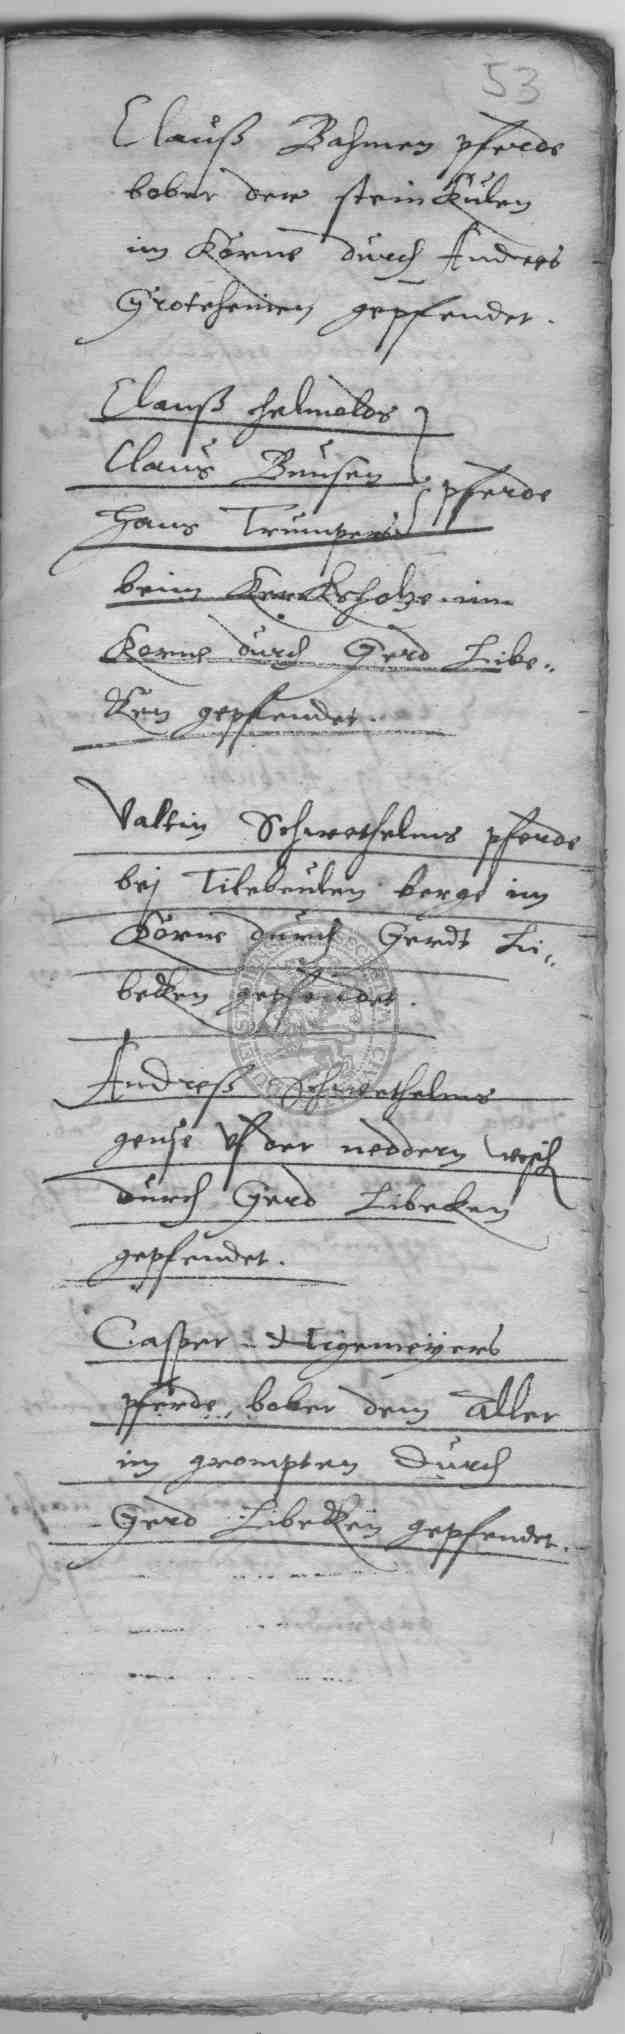 53
Clauß Bahmen pferde
bober der steinkulen
im Korne durch Andres
Grotehenien gepfendet.
Clauß Helmolds
Claus Bunsen pferde
Hans Trumpers
beim Kerckholze im
Korne durch Gerd Libe„
ken gepfendet.
Valtin Schwethelms pferde
bej Tilebeulen berge im
Korne durch Gerdt Li„
becken gepfendet.
Andreß Schwethelms
gense uf der neddern wisch
durch Gerd Libecken
gepfendet.
Casper Nigemeyers
pferde bober dem Aller
im durch
Gerd Libecken gepfendet.